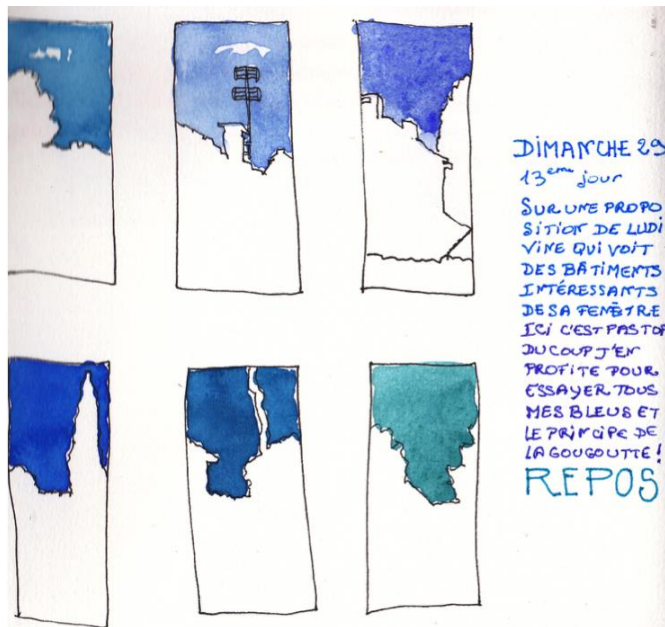 DIMANCHE 29
13eme jour
SUR UNE PROPO
SITION DE LUDI
VINE QUI VOIT
DES BÂTIMENTS
INTÉRESSANTS
DE SA FENÊTRE
ICI C'EST PASTOP
DU COUP J'EN
PROFITE POUR
ESSAYER TOUS
MES BLEUS ET
LE PRINCIPE DE
LA GOUGOUTTE !
REPOS